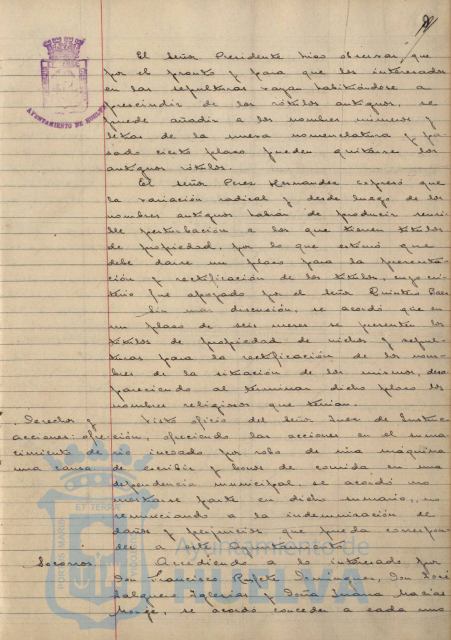 El Señor Presidente hizo observar que
por el pronto y para que los interesados
en las sepulturas vayan habituándose a
prescindir de los rótulos antiguos, se
puede añadir a los nombres números y
letras de la nueva nomenclatura y pa-
sado cierto plazo pueden quitarse los
antiguos rótulos.
El Señor Perez Hernandez expresó que
la variación radical y desde luego de los
nombres antiguos habrán de producir sensi-
ble perturbación a los que tienen títulos
de propiedad, por lo que estimó que
debe darse un plazo para la presenta-
ción y rectificación de los títulos, cuyo cri-
terio fue apoyado por el Señor Quintero Baez
Sin mas discusión, se acordó que en
un plazo de seis meses se presenten los
títulos de propiedad de nichos y sepul-
turas para la rectificación de los nom-
bres de la situación de los mismos, desa-
pareciendo al terminar dicho plazo los
nombres religiosos que tenian.
Derechos y
acciones: ofre-
cimiento de
una causa
Visto oficio del Señor Juez de Instruc-
ción, ofreciendo las acciones en el suma-
rio incoado por robo de una máquina
de escribir y bonos de comida en una
dependencia municipal, se acordó no
mostrarse parte en dicho sumario, no
renunciando a la indemnización de
daños y perjuicios que pueda correspon-
der a este Ayuntamiento
Socorros.
Accediendo a lo interesado por
Don Francisco Rufete Dominguez, Don José
Salguero Iglesias y Doña Juana Macias
Monge, se acordó conceder a cada uno
AYUNTAMIENTO DE HUELVA
Ayuntamiento de
HUELVA
PORTUS MARIS
ET TERRAE